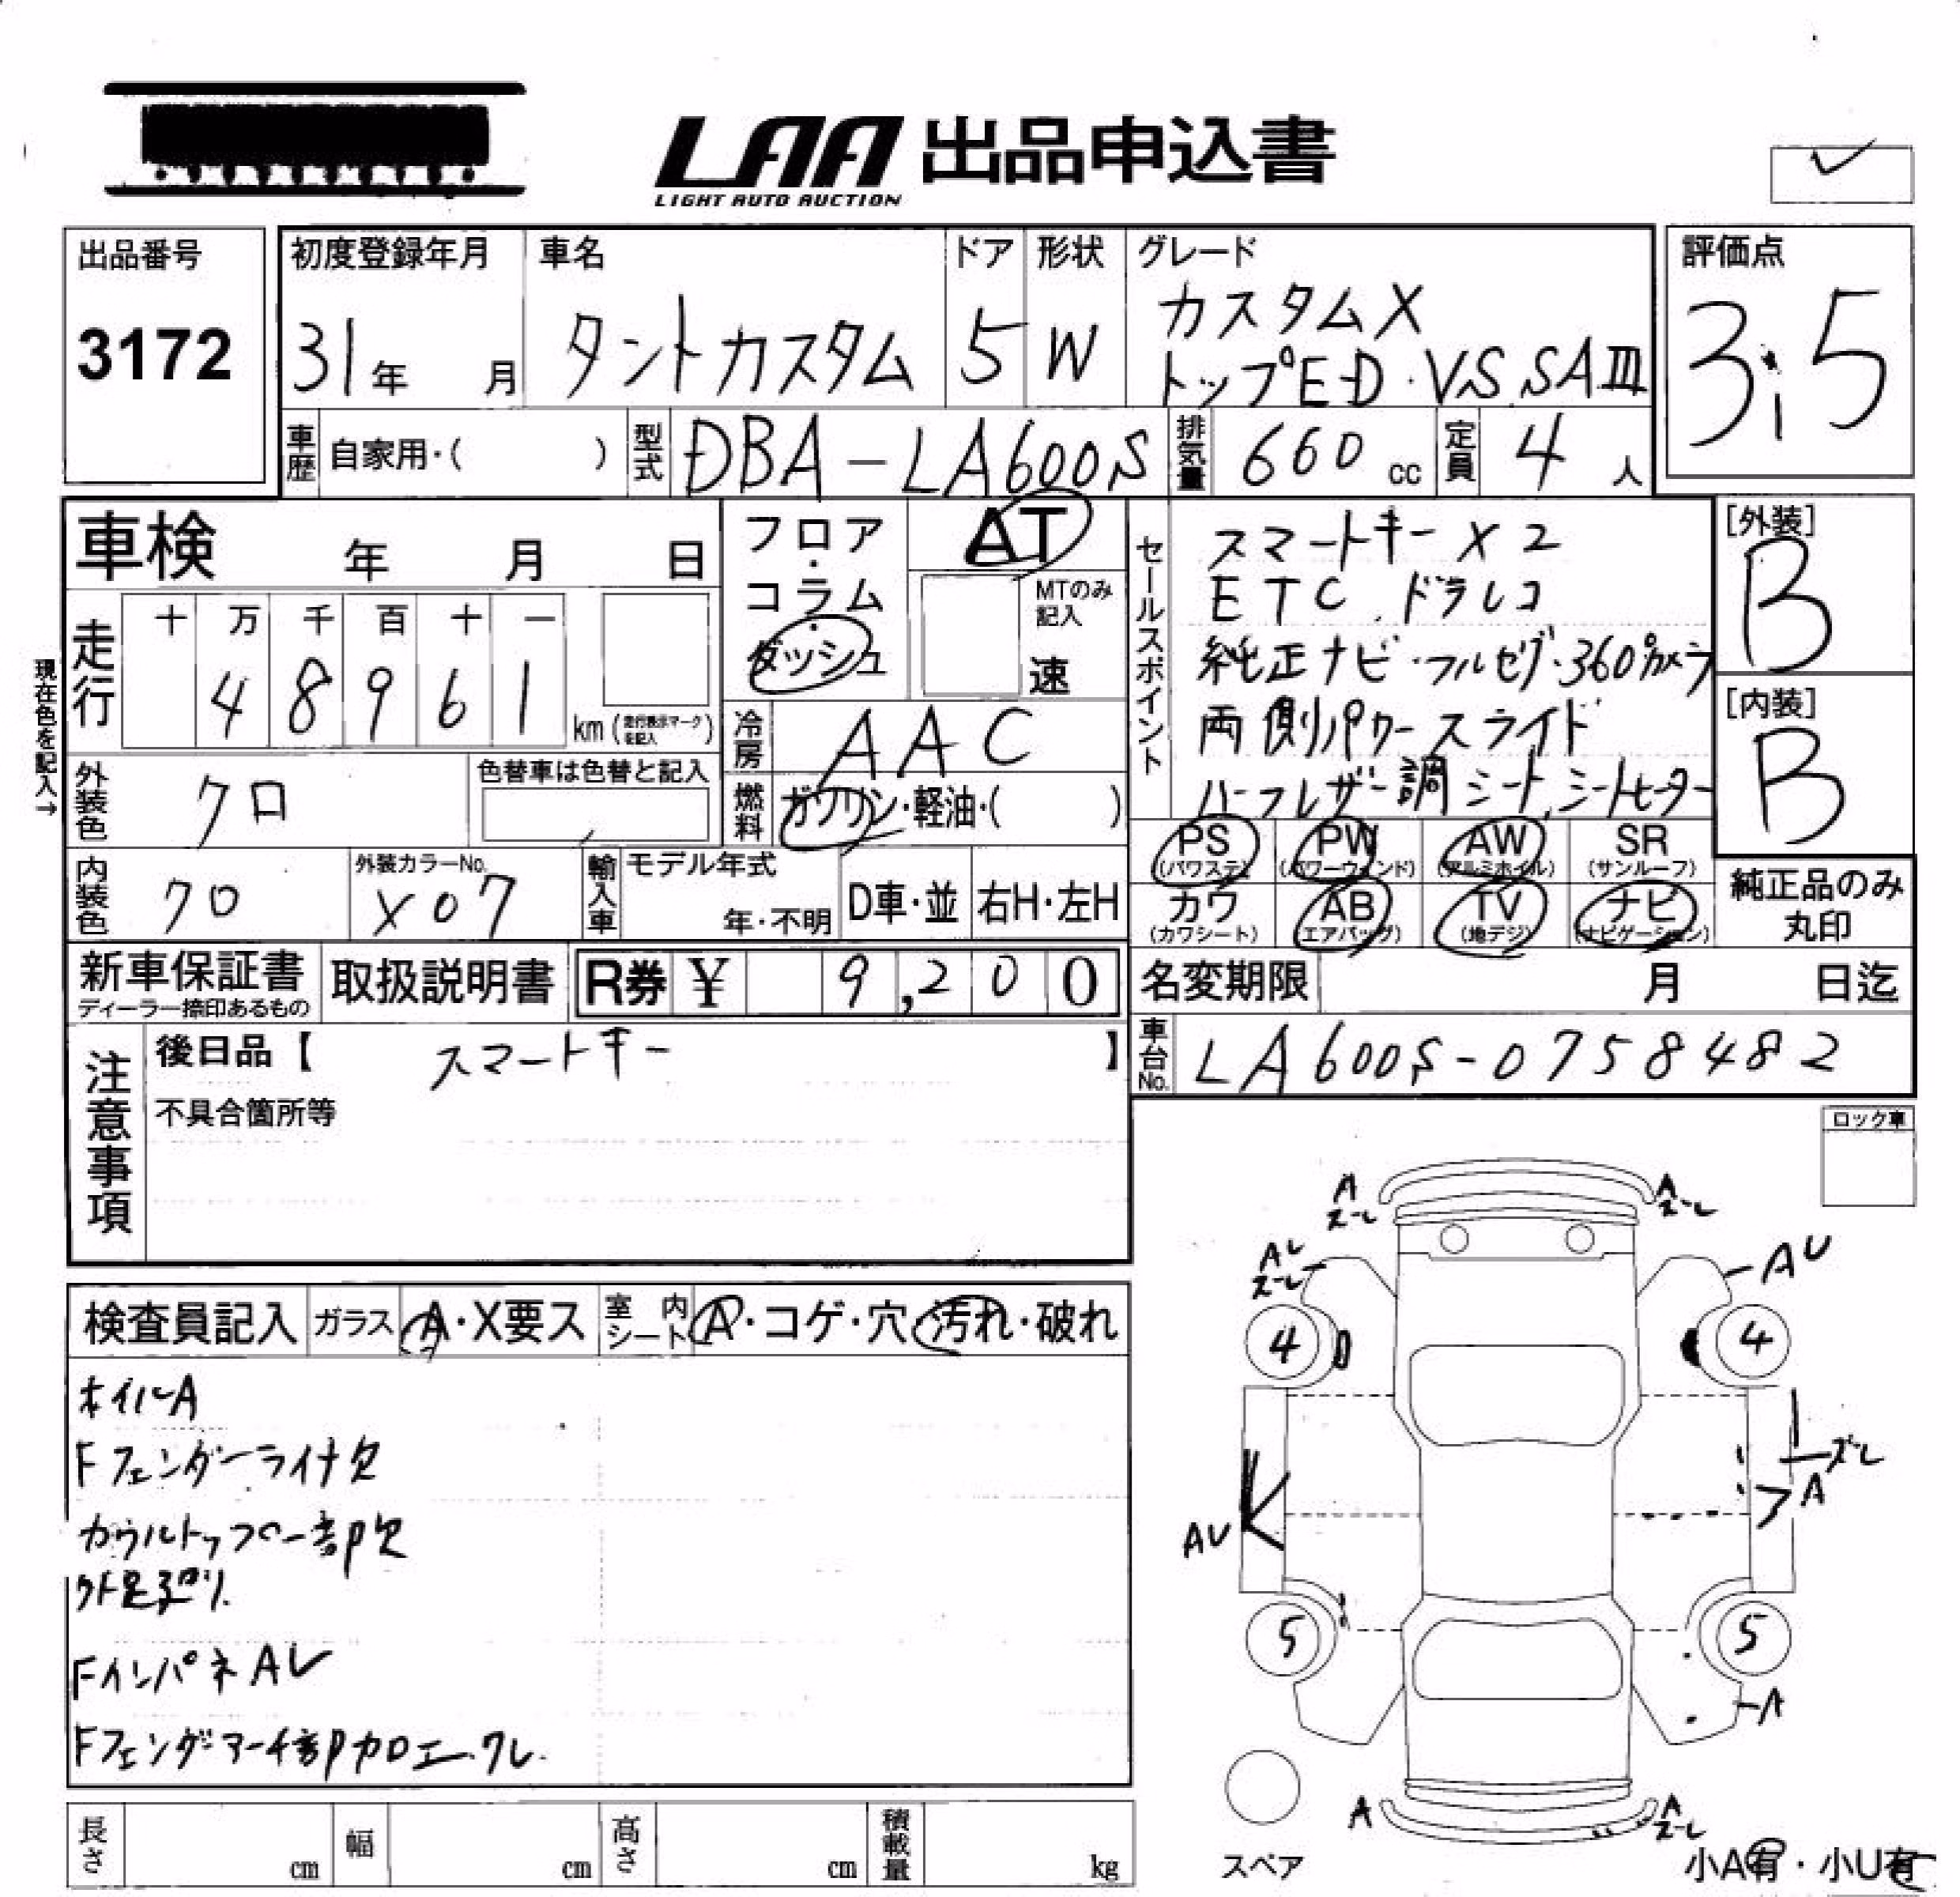 LAA 出品申込書
LIGHT AUTO AUCTION
出品番号
3172
初度登録年月
31年 月
車名
タントカスタム
ドア
5
形状
W
グレード
カスタムX
トップED・VS SAⅢ
評価点
3.5
車歴 自家用・( )
型式 DBA-LA600S
排気量 660 cc
定員 4 人
車検 年 月 日
フロア・コラム・ダッシュ
AT
MTのみ記入
速
セールスポイント
スマートキー×2
ETC、ドラレコ
純正ナビ・フルセグ・360°カメラ
両側パワースライド
ハーフレザー調シート、シートヒーター
[外装]
B
[内装]
B
現在色を記入→
走行
十 万 千 百 十 一
4 8 9 6 1
km(走行表示マークを記入)
冷房 AAC
燃料 ガソリン・軽油・( )
外装色 クロ
色替車は色替と記入
内装色 クロ
外装カラーNo.
X07
輸入車
モデル年式
年・不明
D車・並
右H・左H
PS (パワステ)
PW (パワーウィンド)
AW (アルミホイル)
SR (サンルーフ)
カワ (カワシート)
AB (エアバッグ)
TV (地デジ)
ナビ (ナビゲーション)
純正品のみ丸印
新車保証書
ディーラー捺印あるもの
取扱説明書
R券 ¥ 9,200
名変期限 月 日迄
車台No. LA600S-0758482
注意事項
後日品【 スマートキー 】
不具合箇所等
ロック車
検査員記入
ガラス A・X要ス
室内シート A・コゲ・穴・汚れ・破れ
ホイルA
Fフェンダーライナ欠
カウルトップ一部欠
外足廻り
FインパネAレ
Fフェンダアーチ部カロエ、ワレ
A
ズーレ
A
ズーレ
AU
ズーレ
AU
4
4
ズレ
A
AU
5
5
A
A
A
ズーレ
スペア
小A有・小U有
長さ cm
幅 cm
高さ cm
積載量 kg